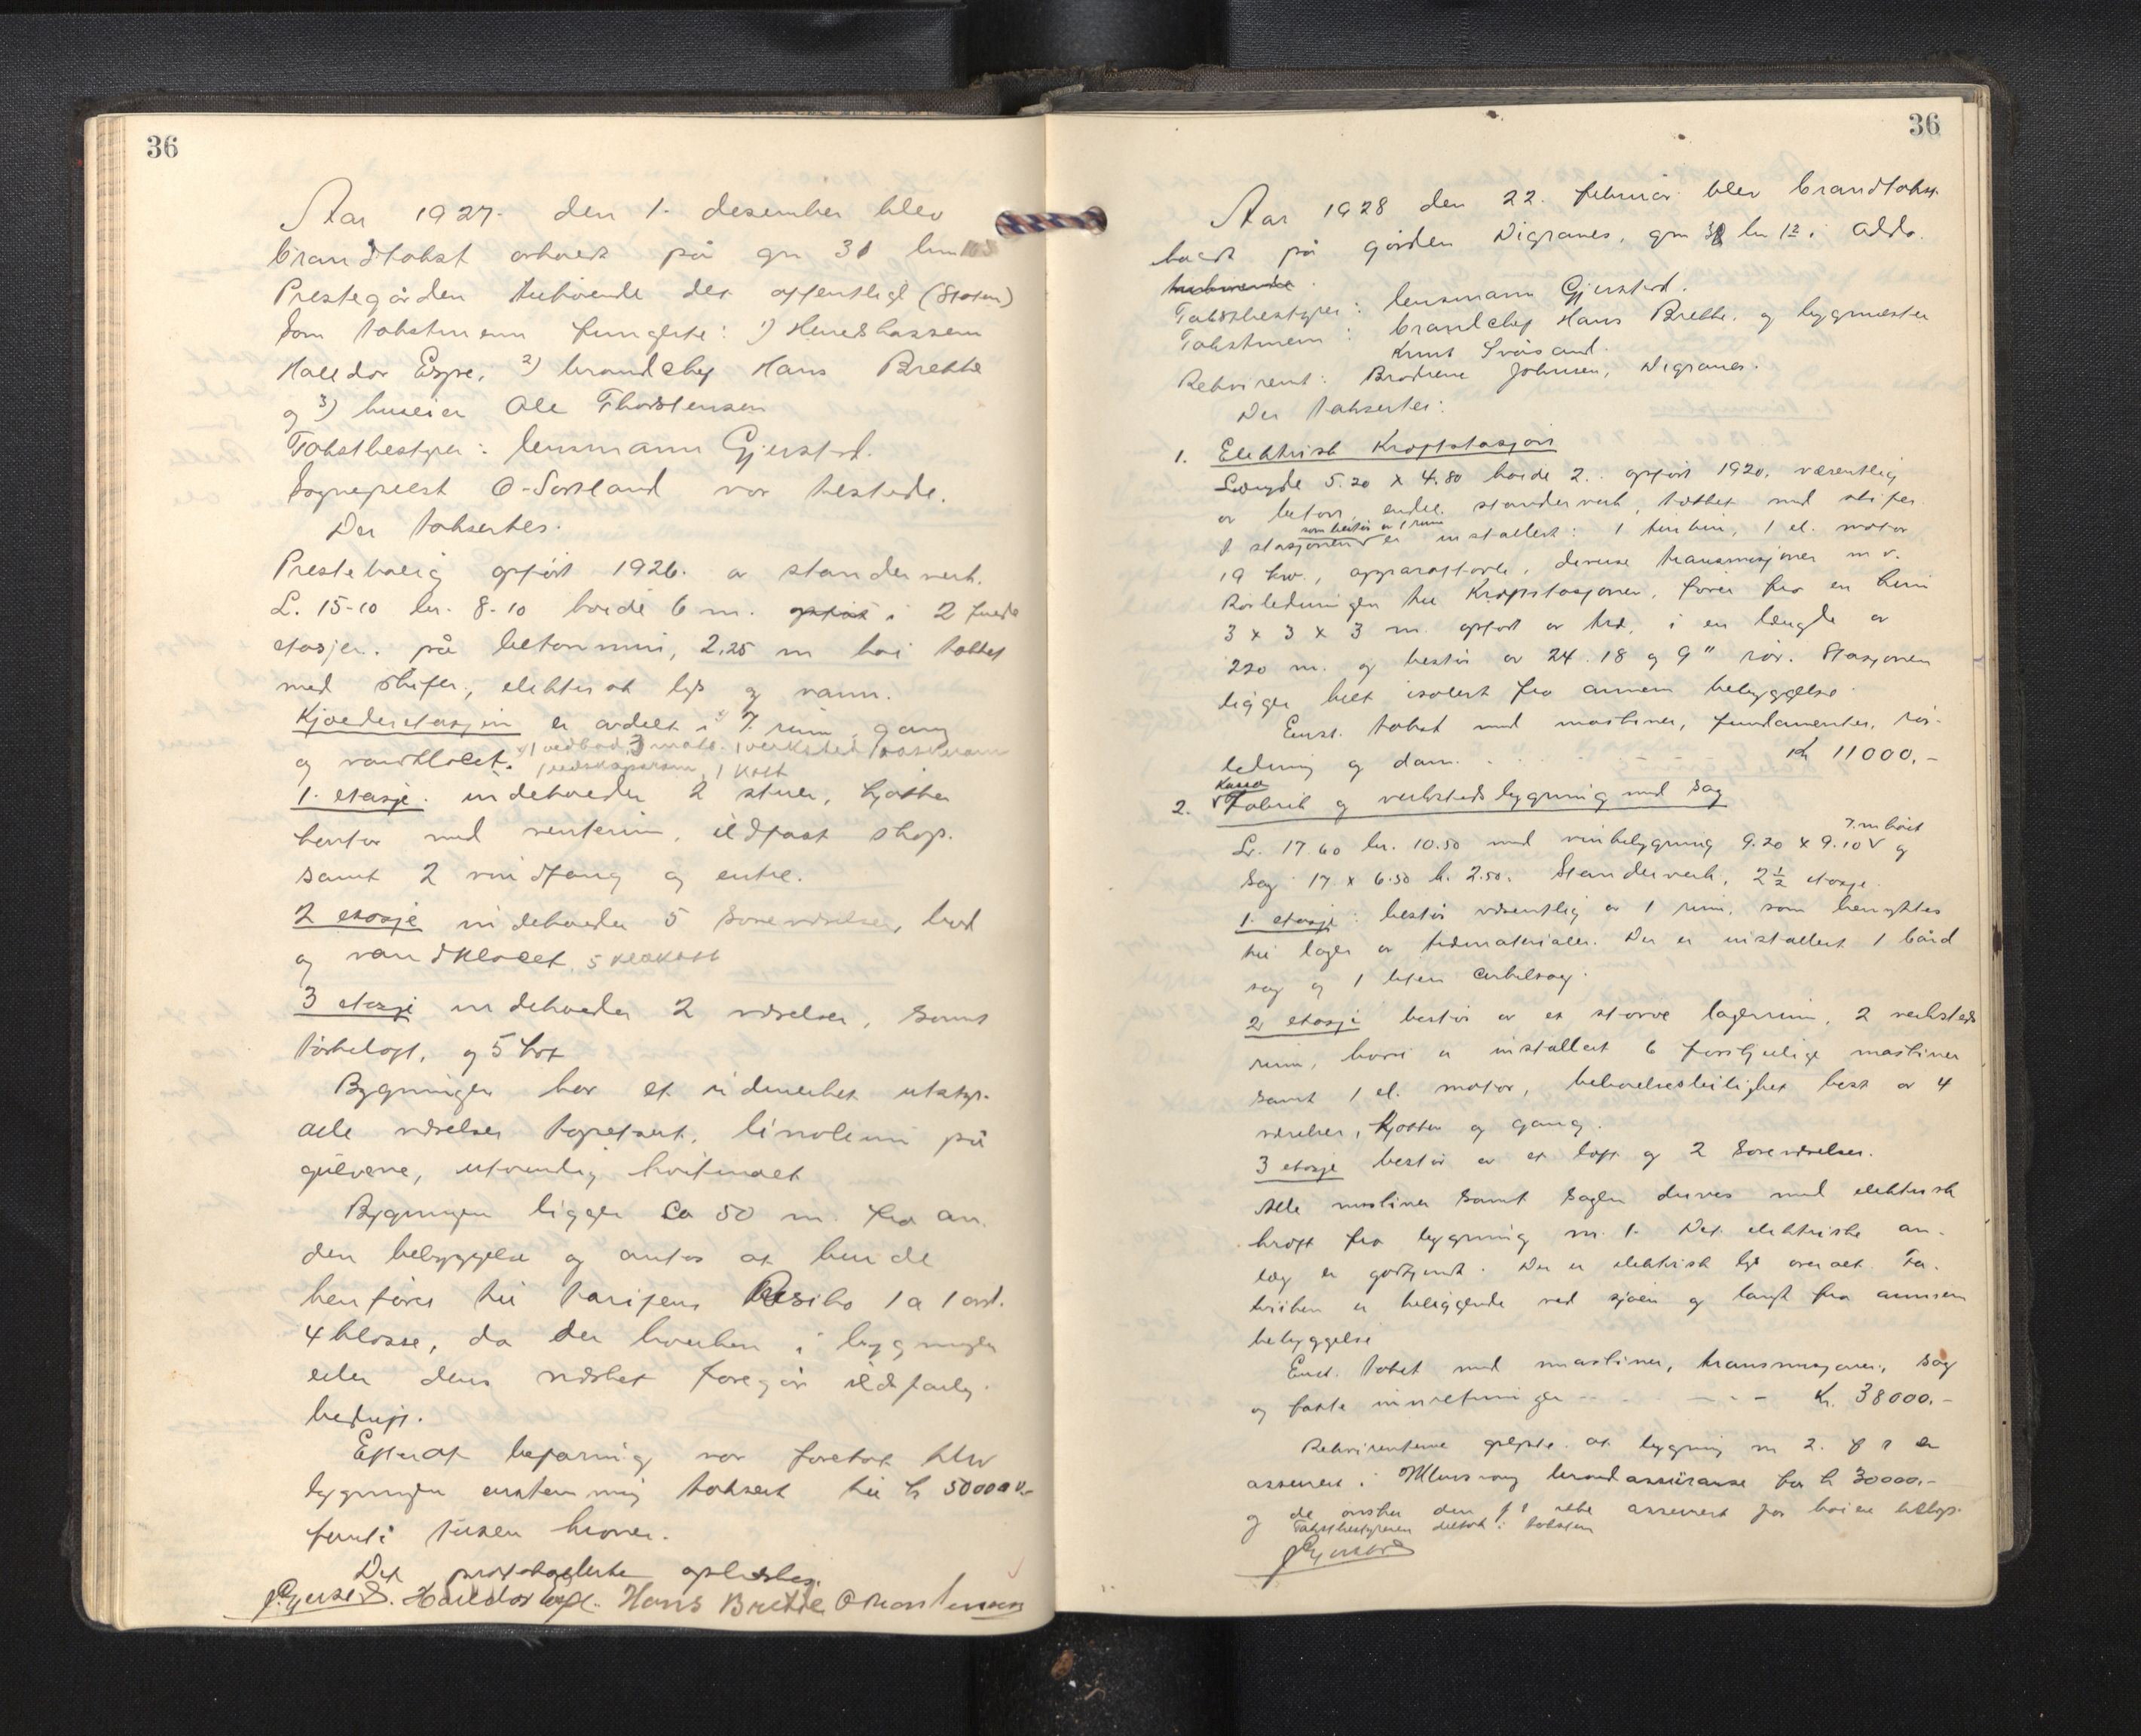 36
Aar 1927. den 1. desember blev
brandtakst avholdt på gn 31 bn
Prestegården tilhörende det offentlige (Staten)
Som takstmenn fungerte: 1) Herredskasserer
Halldor Espe, 2) brandchef Hans Brekke
og 3) huseier Ole Thorstensen
Takstbestyrer: lensmann Gjerstad.
Sogneprest O-Sortland var tilstede.
Der takseertes.
Prestebolig opfört 1926. av standerverk.
L. 15-10 br. 8-10 höide 6 m. opfört i 2 fulde
etasjer. på betonmur, 2.25 m höi taktet
med skifer, elektrisk lys og vann.
Kjælderetasjen er avdelt i 7 rum, gang
og vandklolet. 1 vedbod, 3 matb. 1 verksted 1 vaskerum
1 redskapsrum, 1 kott
1. etasje. indeholder 2 stuer, kjökken
kontor med venterum, ildfast skap.
samt 2 vindfang og entre.
2 etasje indeholder 5 soveværelser, bad
og vandkloset, 5 kleskott
3 etasje indeholder 2 værelser, samt
törkeloft, og 5 kot
Bygningen har et udmerket utstyr.
alle værelser tapetsert, linoleum på
gulvene, utvendig hvitmalt
Bygningen ligger ca 50 m. fra an-
den bebyggelse og antas at burde
henföres til tarifens Risiko 1 a 1 avd.
4 klasse, da der hverken i bygningen
eller dens nærhet foregår ildsfarlig
bedrift.
Efterat befaring var foretat blev
bygningen enstemmig taksert til kr 50000 kr-
femti tusen kroner.
Det protokollerte oplæstes.
Gjerstad. Halldor Espe. Hans Brekke O Thorstensen
36
Aar 1928 den 22. februar blev brandtakst
holdt på gården Digranes, gn 38 bn 12 i Odda.
tilhörende
Takstbestyrer: lensmann Gjerstad.
Takstmenn: brandchef Hans Brekke. og bygmester
Knut Svåsand.
Rekvirent: Brödrene Johnsen, Digranes.
Der taksertes:
1. Elektrisk Kraftstasjon
Længde 5.20 x 4.80 höide 2. opfört 1920, væsentlig
av beton, endel standerverk, tækket med skifer
som består av 1 rum
I stasjonen er installert: 1 turbin, 1 el. motor
19 kw., apparattavle, diverse transmisjoner m v.
Rörledningen til Kraftstasjonen, förer fra en kum
3 x 3 x 3 m. opfört av træ, i en længde av
220 m. og består av 24. 18 og 9" rör. Stasjonen
ligger helt isolert fra annen bebyggelse
Enst. takst med maskiner, fundamenter, rör-
ledning og dam. Kr 11000,-
Kasse
2. Fabrik og verkstedsbygning med Sag
L. 17.60 br. 10.50 med vinkelbygning 9.20 x 9.10 7. m höit og
Sag 17 x 6.50 h. 2.50. Standerverk, 2½ etasje.
1. etasje: består væsentlig av 1 rum, som benyttes
til lager av træmaterialer. Der er installert 1 bånd
sag og 1 liten cirkelsag.
2 etasje består av et större lagerrum, 2 verksteds
rum, hvori er installert 6 forskjellige maskiner
samt 1 el. motor, beboelsesleilighet best av 4
værelser, kjökken og gang.
3 etasje består av et loft og 2 Soveværelser.
Alle maskiner samt Sagen drives med elektrisk
kraft fra bygning nr. 1. Det elektriske an-
læg er godkjendt. Der er elektrisk lys overalt. Fa-
brikken er beliggende ved sjöen og langt fra annen
bebyggelse
Enst. takst med maskiner, transmisjoner, Sag
og faste innretninger Kr. 38000.-
Rekvirentene oplyste at bygning nr 2. f t er
assurert i brandassurance for kr 30000.-
og de önsker den f t ikke assurert for höiere belöp.
Takstbestyreren deltok i taksten
Gjerstad